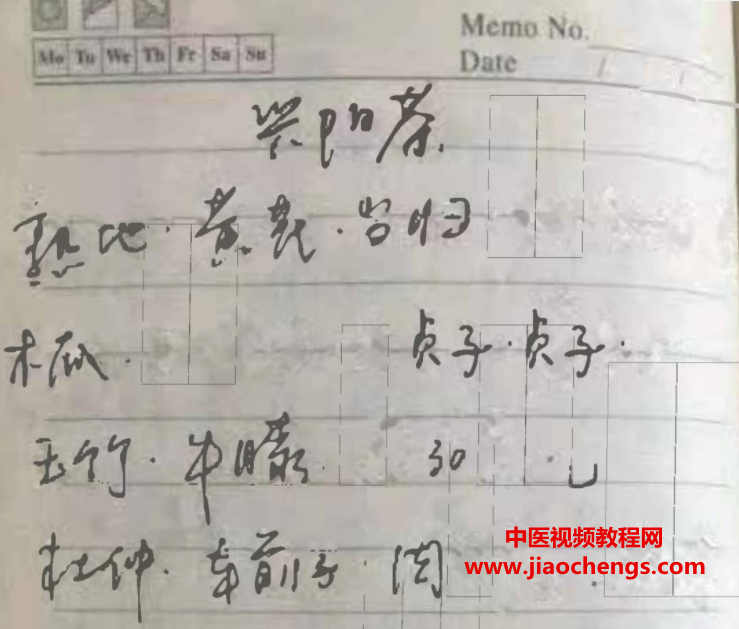 Memo No.
Mo Tu We Th Fr Sa Su
Date / /
兴阳茶
熟地·黄芪·当归
木瓜· 贞子·贞子·
玉竹·牛膝 30
杜仲·车前子 肉
中医视频教程网
www.jiaochengs.com